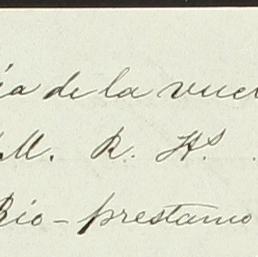 ia de la vuel
M. R. Hs.
Rio-prestamo